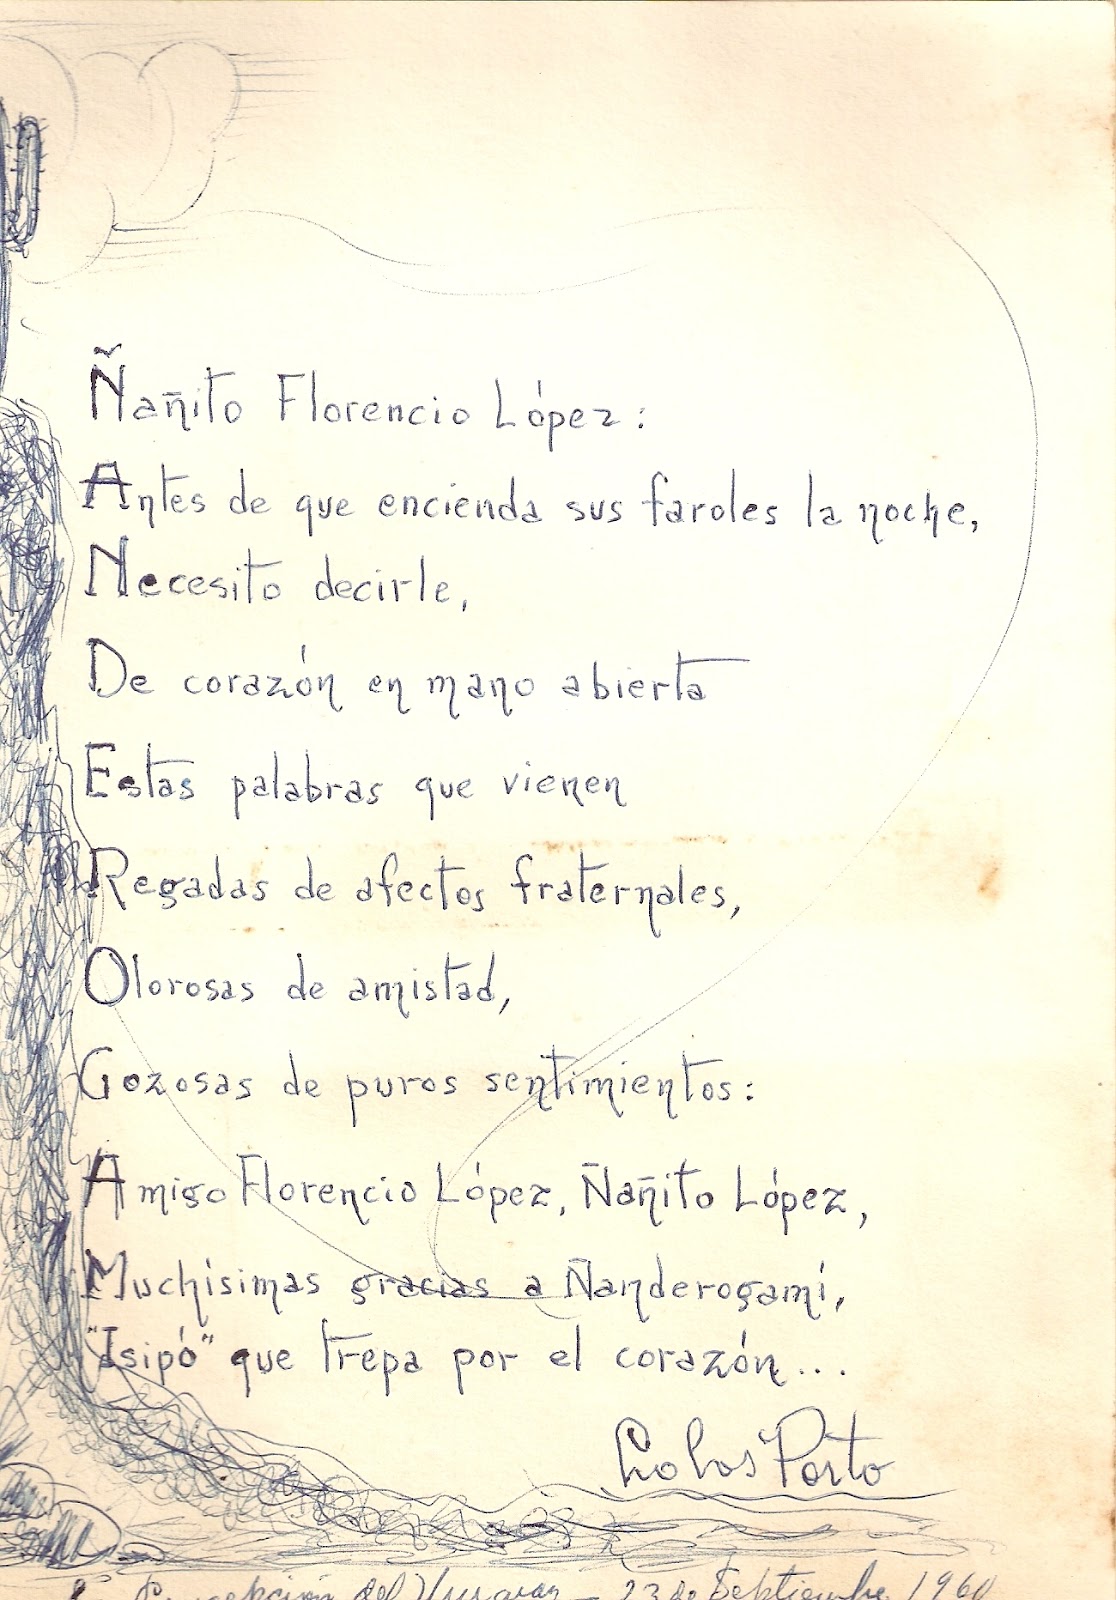 Ñañito Florencio López:
Antes de que encienda sus faroles la noche,
Necesito decirle,
De corazón en mano abierta
Estas palabras que vienen
Regadas de afectos fraternales,
Olorosas de amistad,
Gozosas de puros sentimientos:
Amigo Florencio López, Ñañito López,
Muchísimas gracias a Ñanderogamí,
"Isipó" que trepa por el corazón...
Porto
Concepción del Uruguay - 23 de Septiembre 1960